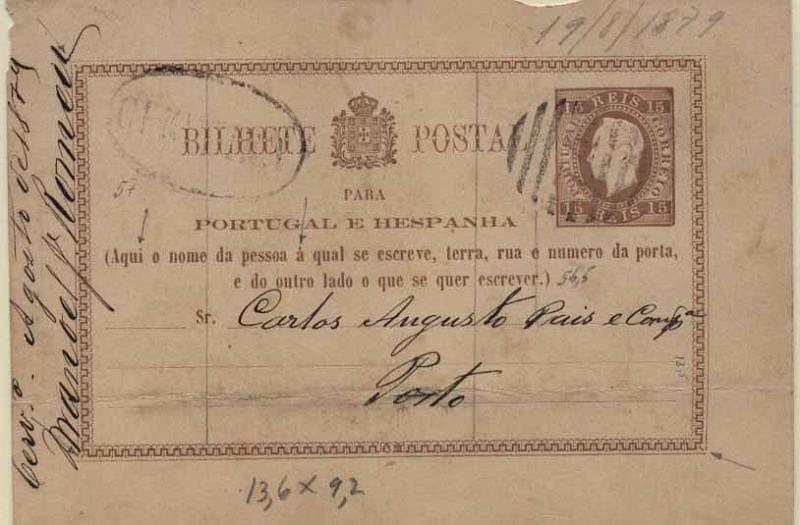 19/8/1879
BILHETE POSTAL
15 REIS 15
PORTUGAL CORREIO
15 REIS 15
57
PARA
PORTUGAL E HESPANHA
(Aqui o nome da pessoa á qual se escreve, terra, rua e numero da porta,
e do outro lado o que se quer escrever.) 56,5
Sr. Carlos Augusto Pais e Comp.a
Porto
13,5
13,6 x 9,2
Agosto 1879
Manoel Romeu